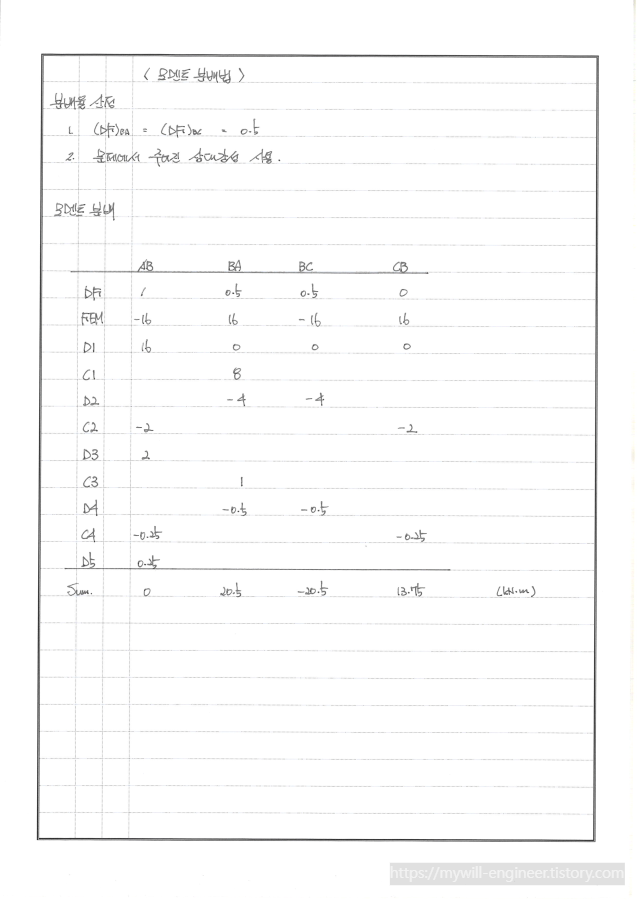 < 모멘트 분배법 >
분배율 산정
1. (DF)BA = (DF)BC = 0.5
2. 문제에서 주어진 상대강성 사용.
모멘트 분배
AB BA BC CB
DF 1 0.5 0.5 0
FEM -16 16 -16 16
D1 16 0 0 0
C1 8
D2 -4 -4
C2 -2 -2
D3 2
C3 1
D4 -0.5 -0.5
C4 -0.25 -0.25
D5 0.25
Sum. 0 20.5 -20.5 13.75 (kN·m)
https://mywill-engineer.tistory.com